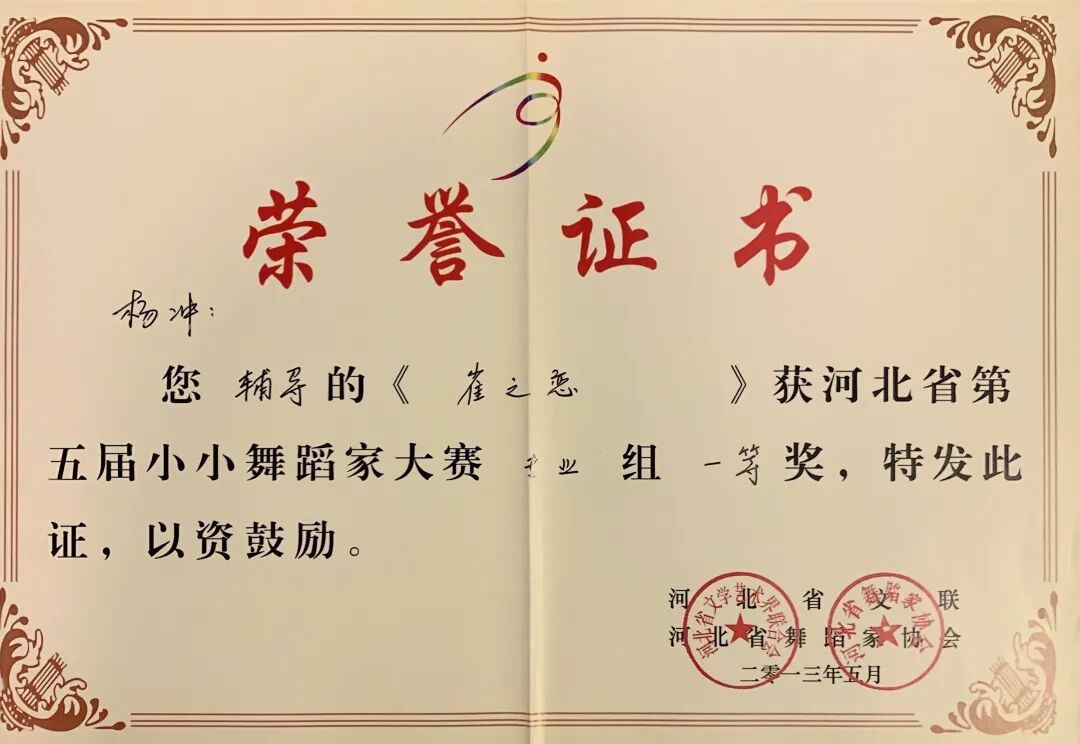 荣誉证书
杨冲：
您辅导的《崔之恋》获河北省第
五届小小舞蹈家大赛专业组一等奖，特发此
证，以资鼓励。
河北省文联
河北省舞蹈家协会
二零一三年五月
河北省文学艺术界联合会
河北省舞蹈家协会